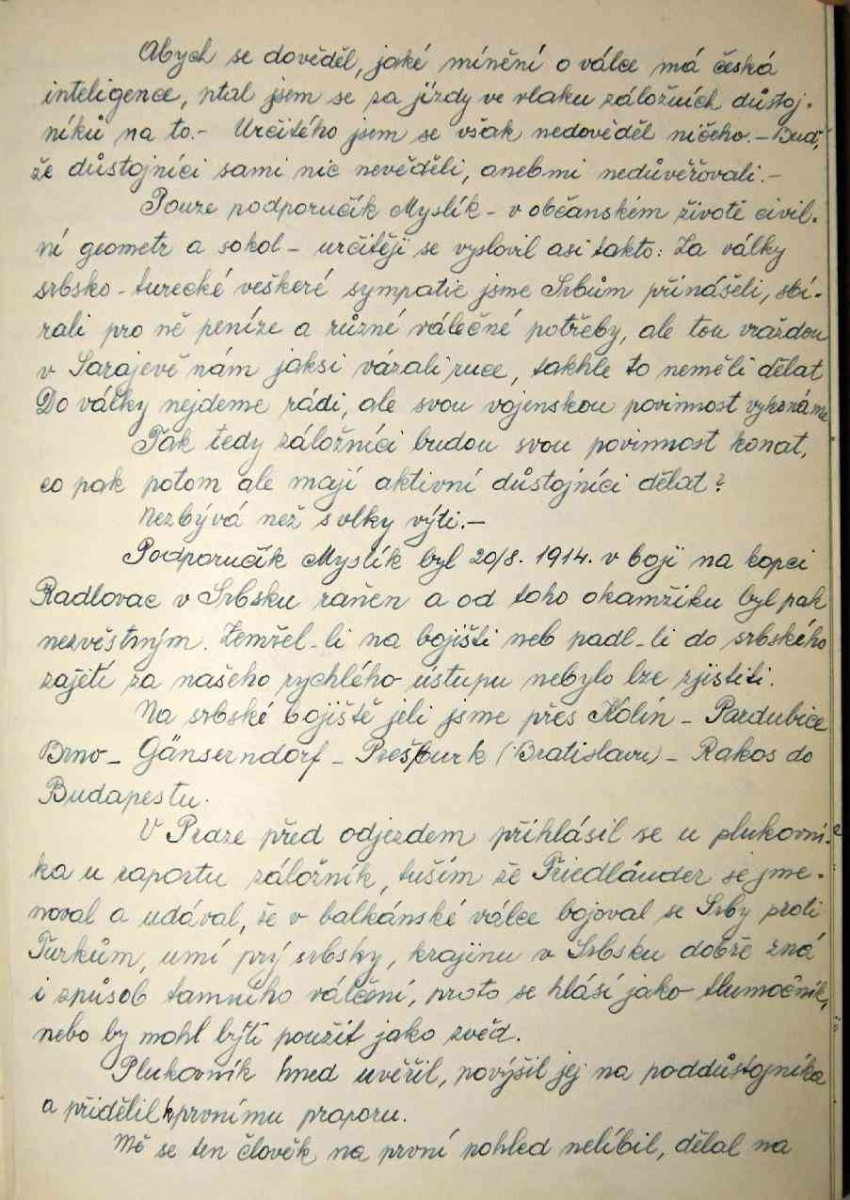 Abych se dověděl, jaké mínění o válce má česká
inteligence, ptal jsem se za jízdy ve vlaku záložních důstoj-
níků na to.- Určitého jsem se však nedověděl ničeho.- Buď,
že důstojníci sami nic nevěděli, anebmi nedůvěřovali.-
Pouze podporučík Myslík - v občanském životě civil-
ní geometr a sokol - určitěji se vyslovil asi takto: Za války
srbsko-turecké veškeré sympatie jsme Srbům přinášeli, sbí-
rali pro ně peníze a různé válečné potřeby, ale tou vraždou
v Sarajevě nám jaksi vázali ruce, takhle to neměli dělat
Do války nejdeme rádi, ale svou vojenskou povinnost vykonáme
Tak tedy záložníci budou svou povinnost konat,
co pak potom ale mají aktivní důstojníci dělat?
Nezbývá než s vlky výti.-
Podporučík Myslík byl 20/8. 1914. v boji na kopci
Radlovac v Srbsku raněn a od toho okamžiku byl pak
nezvěstným. Zemřel-li na bojišti neb padl-li do srbského
zajetí za našeho rychlého ústupu nebylo lze zjistiti.
Na srbské bojiště jeli jsme přes Kolín - Pardubice
Brno - Gänserndorf - Prešpurk (Bratislavu) - Rakos do
Budapestu.
V Praze před odjezdem přihlásil se u plukovní-
ka u raportu záložník, tuším že Friedländer se jme-
noval a udával, že v balkánské válce bojoval se Srby proti
Turkům, umí prý srbsky, krajinu v Srbsku dobře zná
i způsob tamního válčení, proto se hlásí jako tlumočník,
nebo by mohl býti použit jako zvěd.
Plukovník hned uvěřil, povýšil jej na poddůstojníka
a přidělil k prvnímu praporu.
Mě se ten člověk na první pohled nelíbil, dělal na